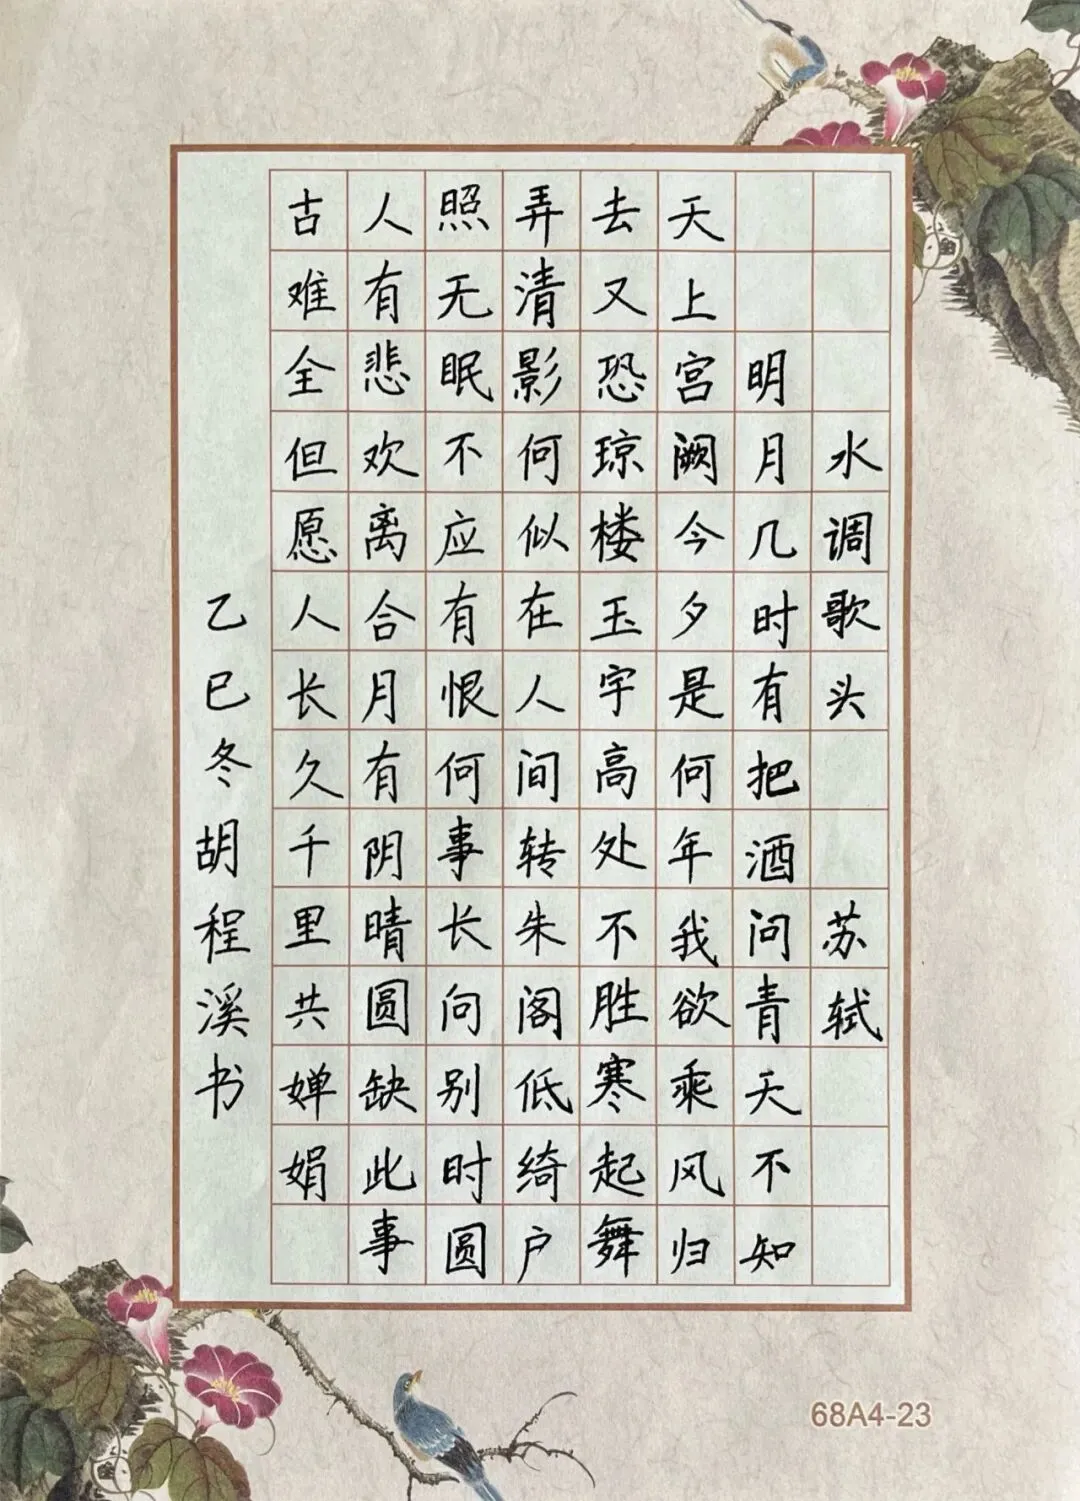 水调歌头 苏轼
明月几时有把酒问青天不知
天上宫阙今夕是何年我欲乘风归
去又恐琼楼玉宇高处不胜寒起舞
弄清影何似在人间转朱阁低绮户
照无眠不应有恨何事长向别时圆
人有悲欢离合月有阴晴圆缺此事
古难全但愿人长久千里共婵娟
乙巳冬胡程溪书
68A4-23